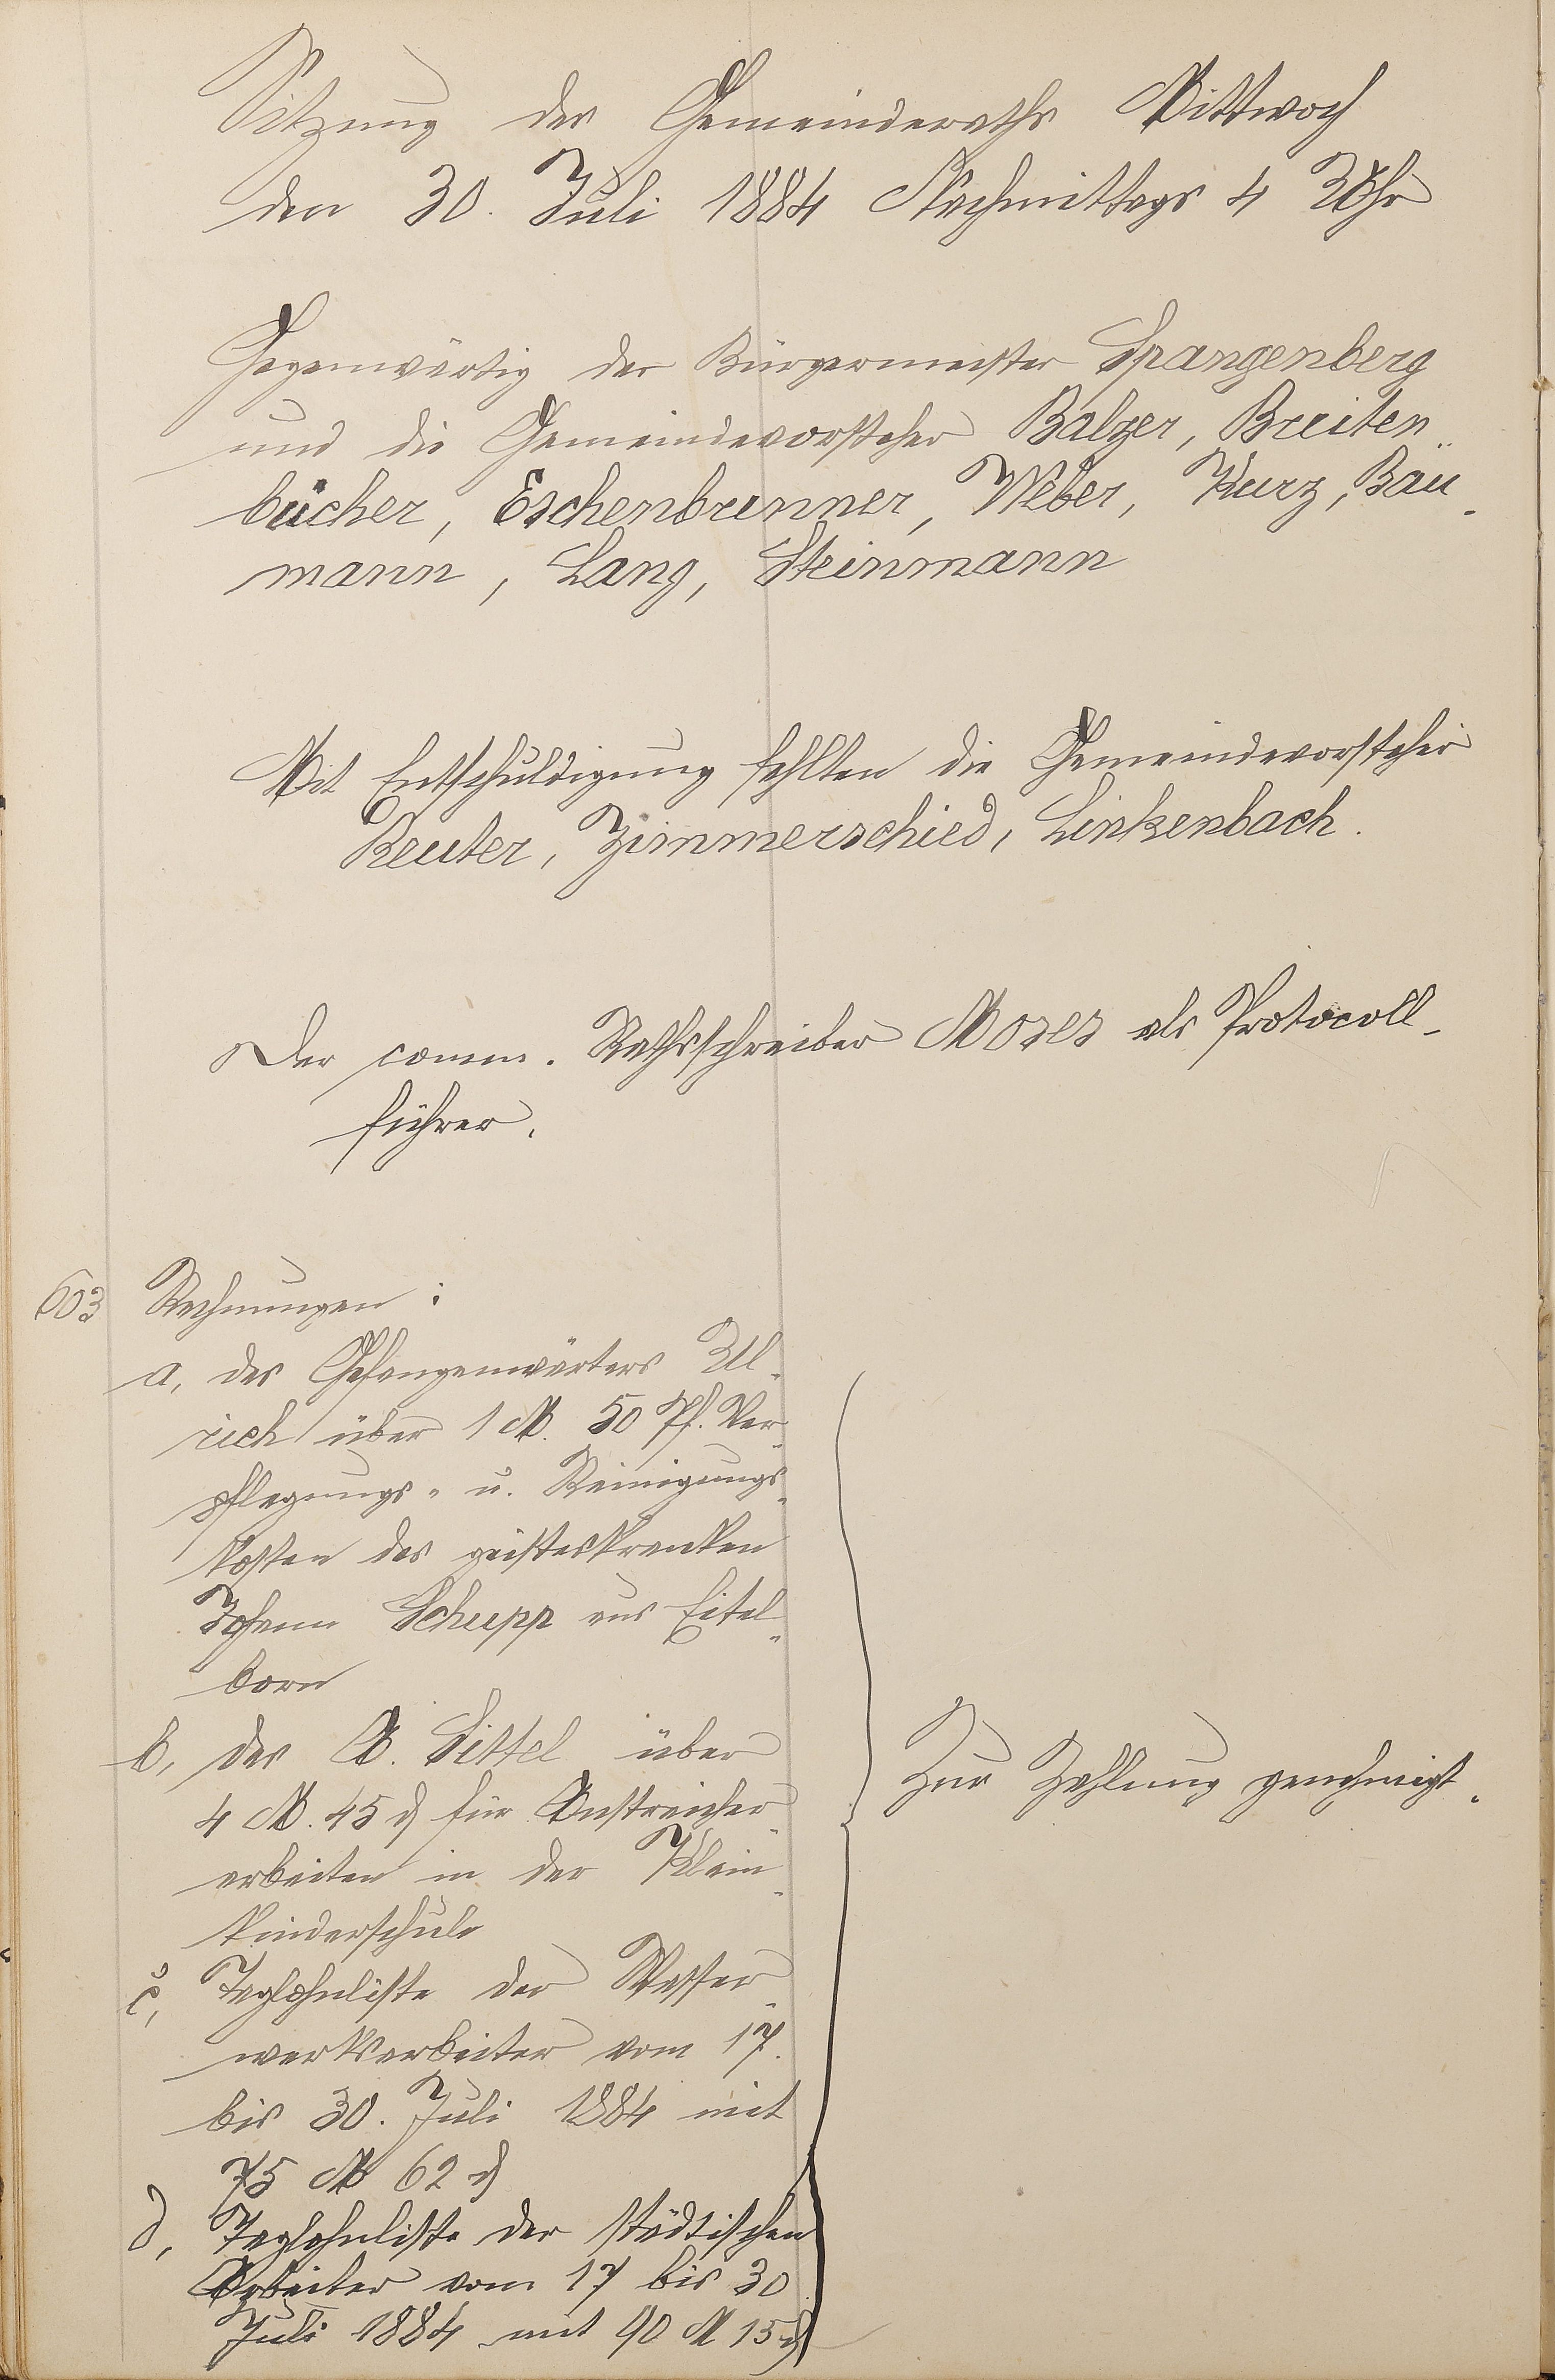 Sitzung des Gemeinderaths Mittwoch
den 30. Juli 1884 Nachmittags 4 Uhr
Gegenwärtig der Bürgermeister Spangenberg
und die Gemeindevorsteher Balzer, Breiten-
bücher, Eschenbrenner, Weber, Kurz, Bau-
mann, Lang, Steinmann
Mit Entschuldigung fehlten die Gemeindevorsteher
Reuter, Zimmerschied, Linkenbach.
Der comm. Rathsschreiber Moses als Protocoll-
führer.
603 Rechnungen:
a, des Gefangenwärters Ul-
rich über 1 M. 50 Pf. Ver-
pflegungs- u. Reinigungs-
kosten des geisteskranken
Johann Schupp aus Eitel-
born
b, des A. Sittel über
4 M. 45 ₰ für Anstreicher-
arbeiten in der Klein-
kinderschule
Zur Zahlung genehmigt.
c, Taglohnliste der Wasser-
werksarbeiter vom 17.
bis 30. Juli 1884 mit
75 M 62 ₰
d, Taglohnliste der städtischen
Arbeiter vom 17 bis 30
Juli 1884 mit 90 M 15 ₰